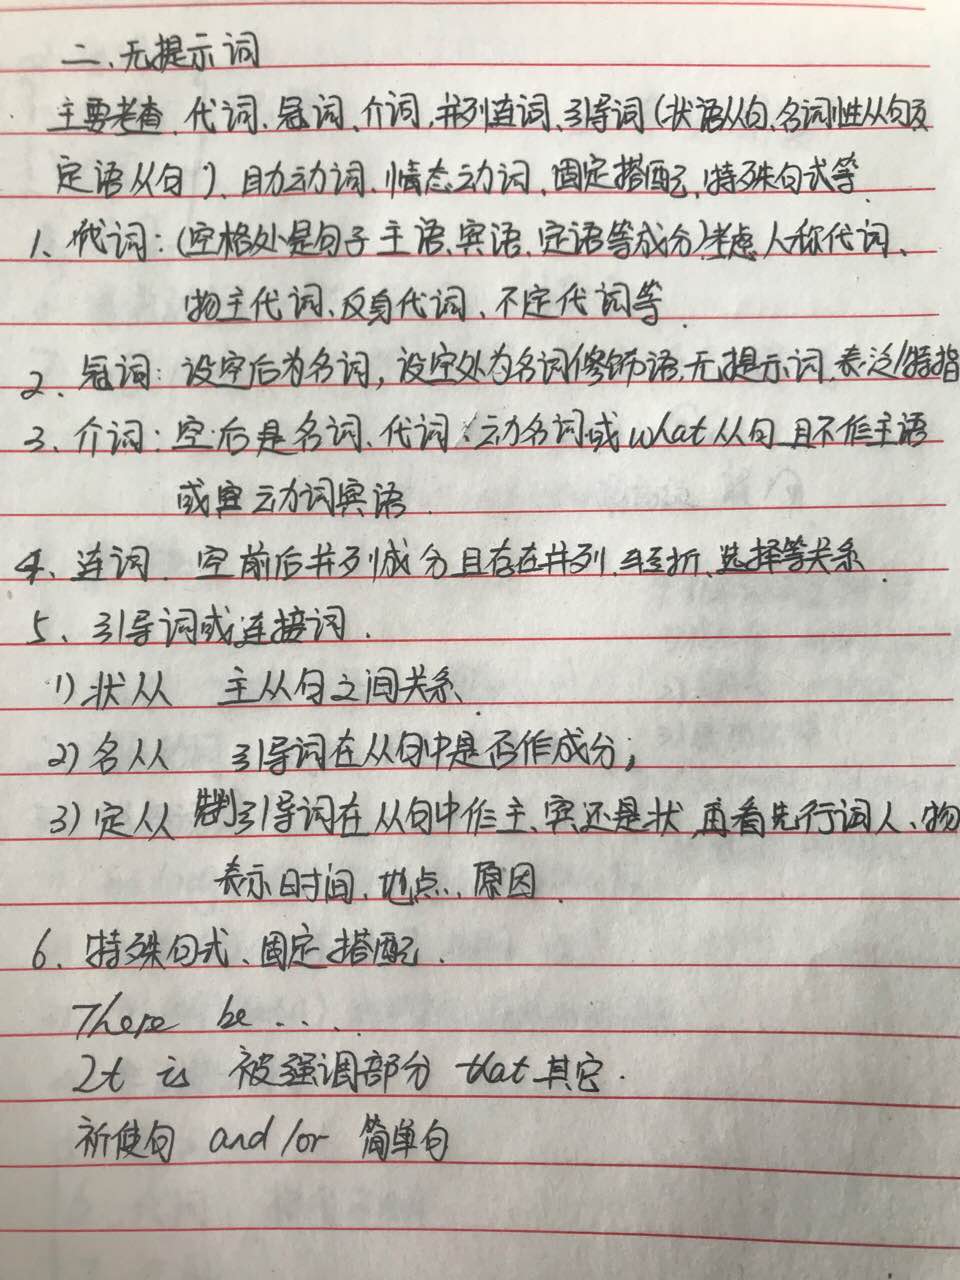 二、无提示词
主要考查、代词、冠词、介词,并列连词、引导词(状语从句、名词性从句及
定语从句)、自助动词、情态动词、固定搭配、特殊句式等
1、代词:(空格处是句子主语、宾语、定语等成分)考虑人称代词、
物主代词、反身代词、不定代词等.
2、冠词:设空后为名词,设空处为名词修饰语,无提示词,表泛/特指
3、介词:空后是名词、代词、动名词或what从句且不作主语
或动词宾语.
4、连词.空前后并列成分且存在并列、转折、选择等关系.
5、引导词或连接词.
1)状从 主从句之间关系.
2)名从 引导词在从句中是否作成分;
3)定从 引导词在从句中作主、宾还是状,再看先行词人、物
表示时间、地点、原因.
6、特殊句式、固定搭配.
There be ....
It is 被强调部分 that 其它.
祈使句 and/or 简单句